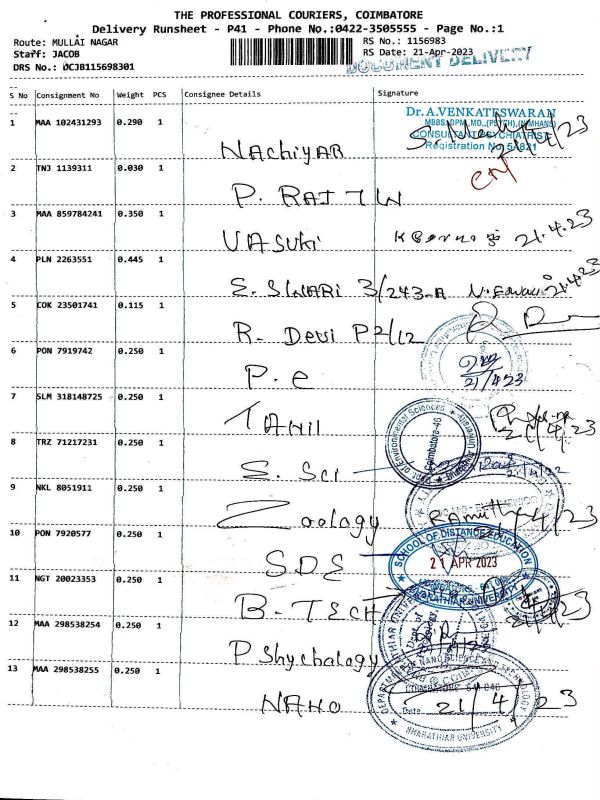 THE PROFESSIONAL COURIERS, COIMBATORE
Delivery Runsheet - P41 - Phone No.:0422-3505555 - Page No.:1
Route: MULLAI NAGAR
RS No.: 1156983
Staff: JACOB
RS Date: 21-Apr-2023
DRS No.: DCJB115698301
DOCUMENT DELIVERY
S No Consignment No Weight PCS Consignee Details Signature
Dr. A. VENKATESWARAN
MBBS, DPM, MD.,(PSYCH),(NIMHANS)
CONSULTANT PSYCHIATRIST
Registration No 54821
1 MAA 102431293 0.290 1
NACHIYAR
2 TNJ 1139311 0.030 1
P. RAJ
3 MAA 859784241 0.350 1
VASUKI 21.4.23
4 PLN 2263551 0.445 1
E. SWARI 3/243-A 21.4.23
5 COK 23501741 0.115 1
R. Devi P2/12
6 PON 7919742 0.250 1
P.e 21/4/23
7 SLM 318148725 0.250 1
TAMIL
8 TRZ 71217231 0.250 1
E. Sci
Dept of Environmental Sciences
Coimbatore-46
9 NKL 8051911 0.250 1
Zoology
10 PON 7920577 0.250 1
SDE
SCHOOL OF DISTANCE EDUCATION
21 APR 2023
BHARATHIAR UNIVERSITY
11 NGT 20023353 0.250 1
B-TECH
12 MAA 298538254 0.250 1
PShychology
13 MAA 298538255 0.250 1
NANO 21/4/23
Date
BHARATHIAR UNIVERSITY